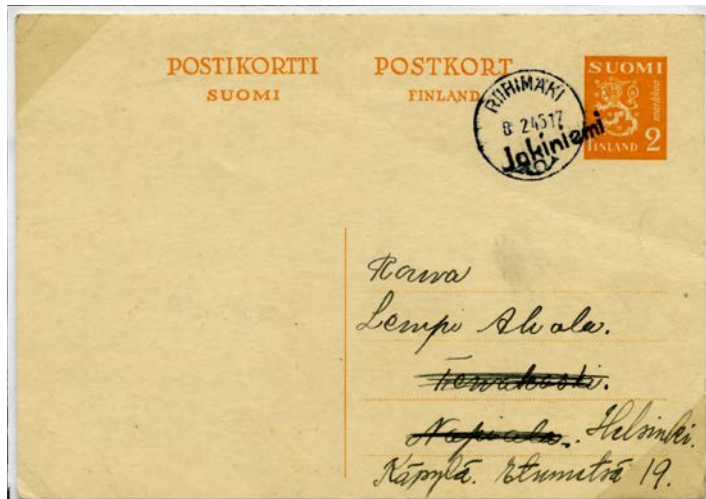 POSTIKORTTI POSTKORT
SUOMI FINLAND
SUOMI
markkaa
FINLAND 2
RIIHIMÄKI
8 2 45 17
Jokiniemi
Rouva
Lempi Ahola.
Tervakoski.
Napiala. Helsinki.
Käpylä. Etumetsä 19.